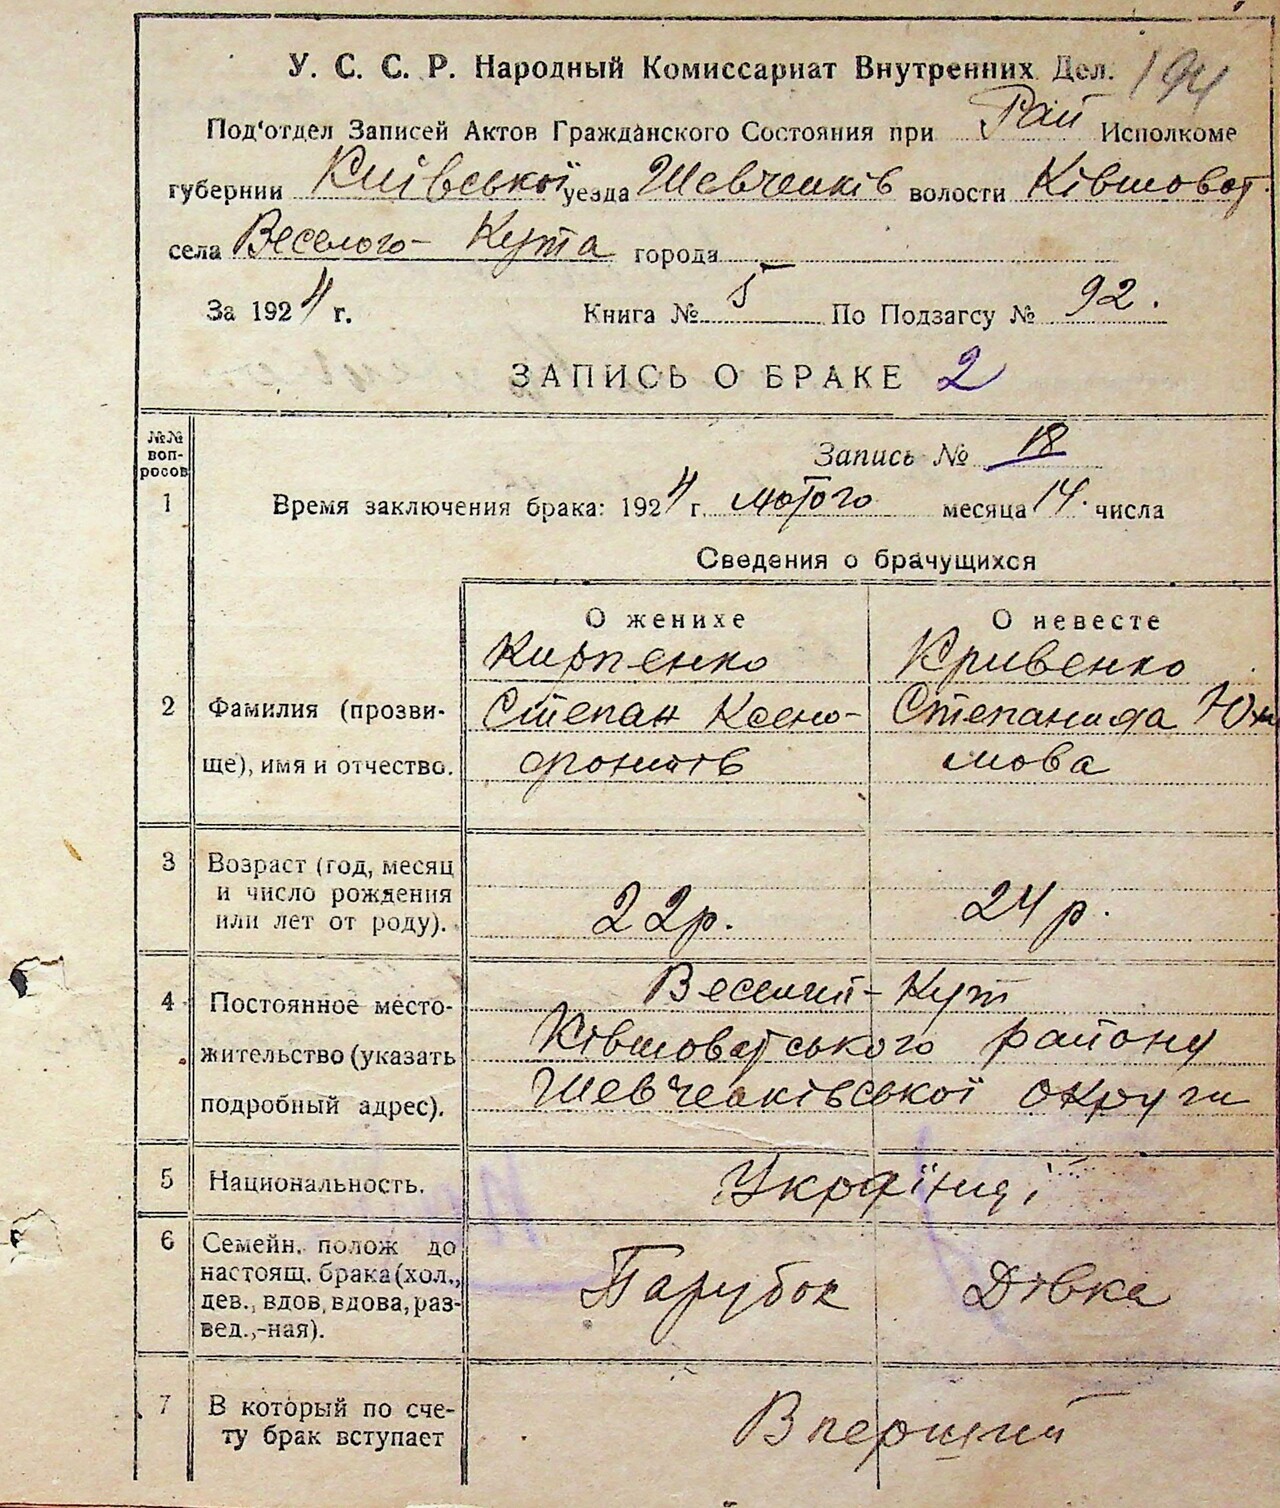 У. С. С. Р. Народный Комиссариат Внутренних Дел. 194
Под'отдел Записей Актов Гражданского Состояния при Рай Исполкоме
губернии Київської уезда Шевченків волости Ківшоват.
села Веселого-Кута города
За 1924 г. Книга № 5 По Подзагсу № 92.
ЗАПИСЬ О БРАКЕ 2
№№ воп-росов
Запись № 18
1 Время заключения брака: 1924 г. лютого месяца 14. числа
Сведения о брачущихся
О женихе О невесте
Кирпенко Кривенко
2 Фамилия (прозви- Степан Ксено- Степанида
ще), имя и отчество. фонтів мова
3 Возраст (год, месяц
и число рождения
или лет от роду). 22р. 24р.
4 Постоянное место- Веселий-Кут
жительство (указать Ківшоватського району
подробный адрес). Шевченківської округи
5 Национальность. Українці
6 Семейн. полож до
настоящ. брака (хол., Парубок Дівка
дев., вдов, вдова, раз-
вед.,-ная).
7 В который по сче- Вперший
ту брак вступает